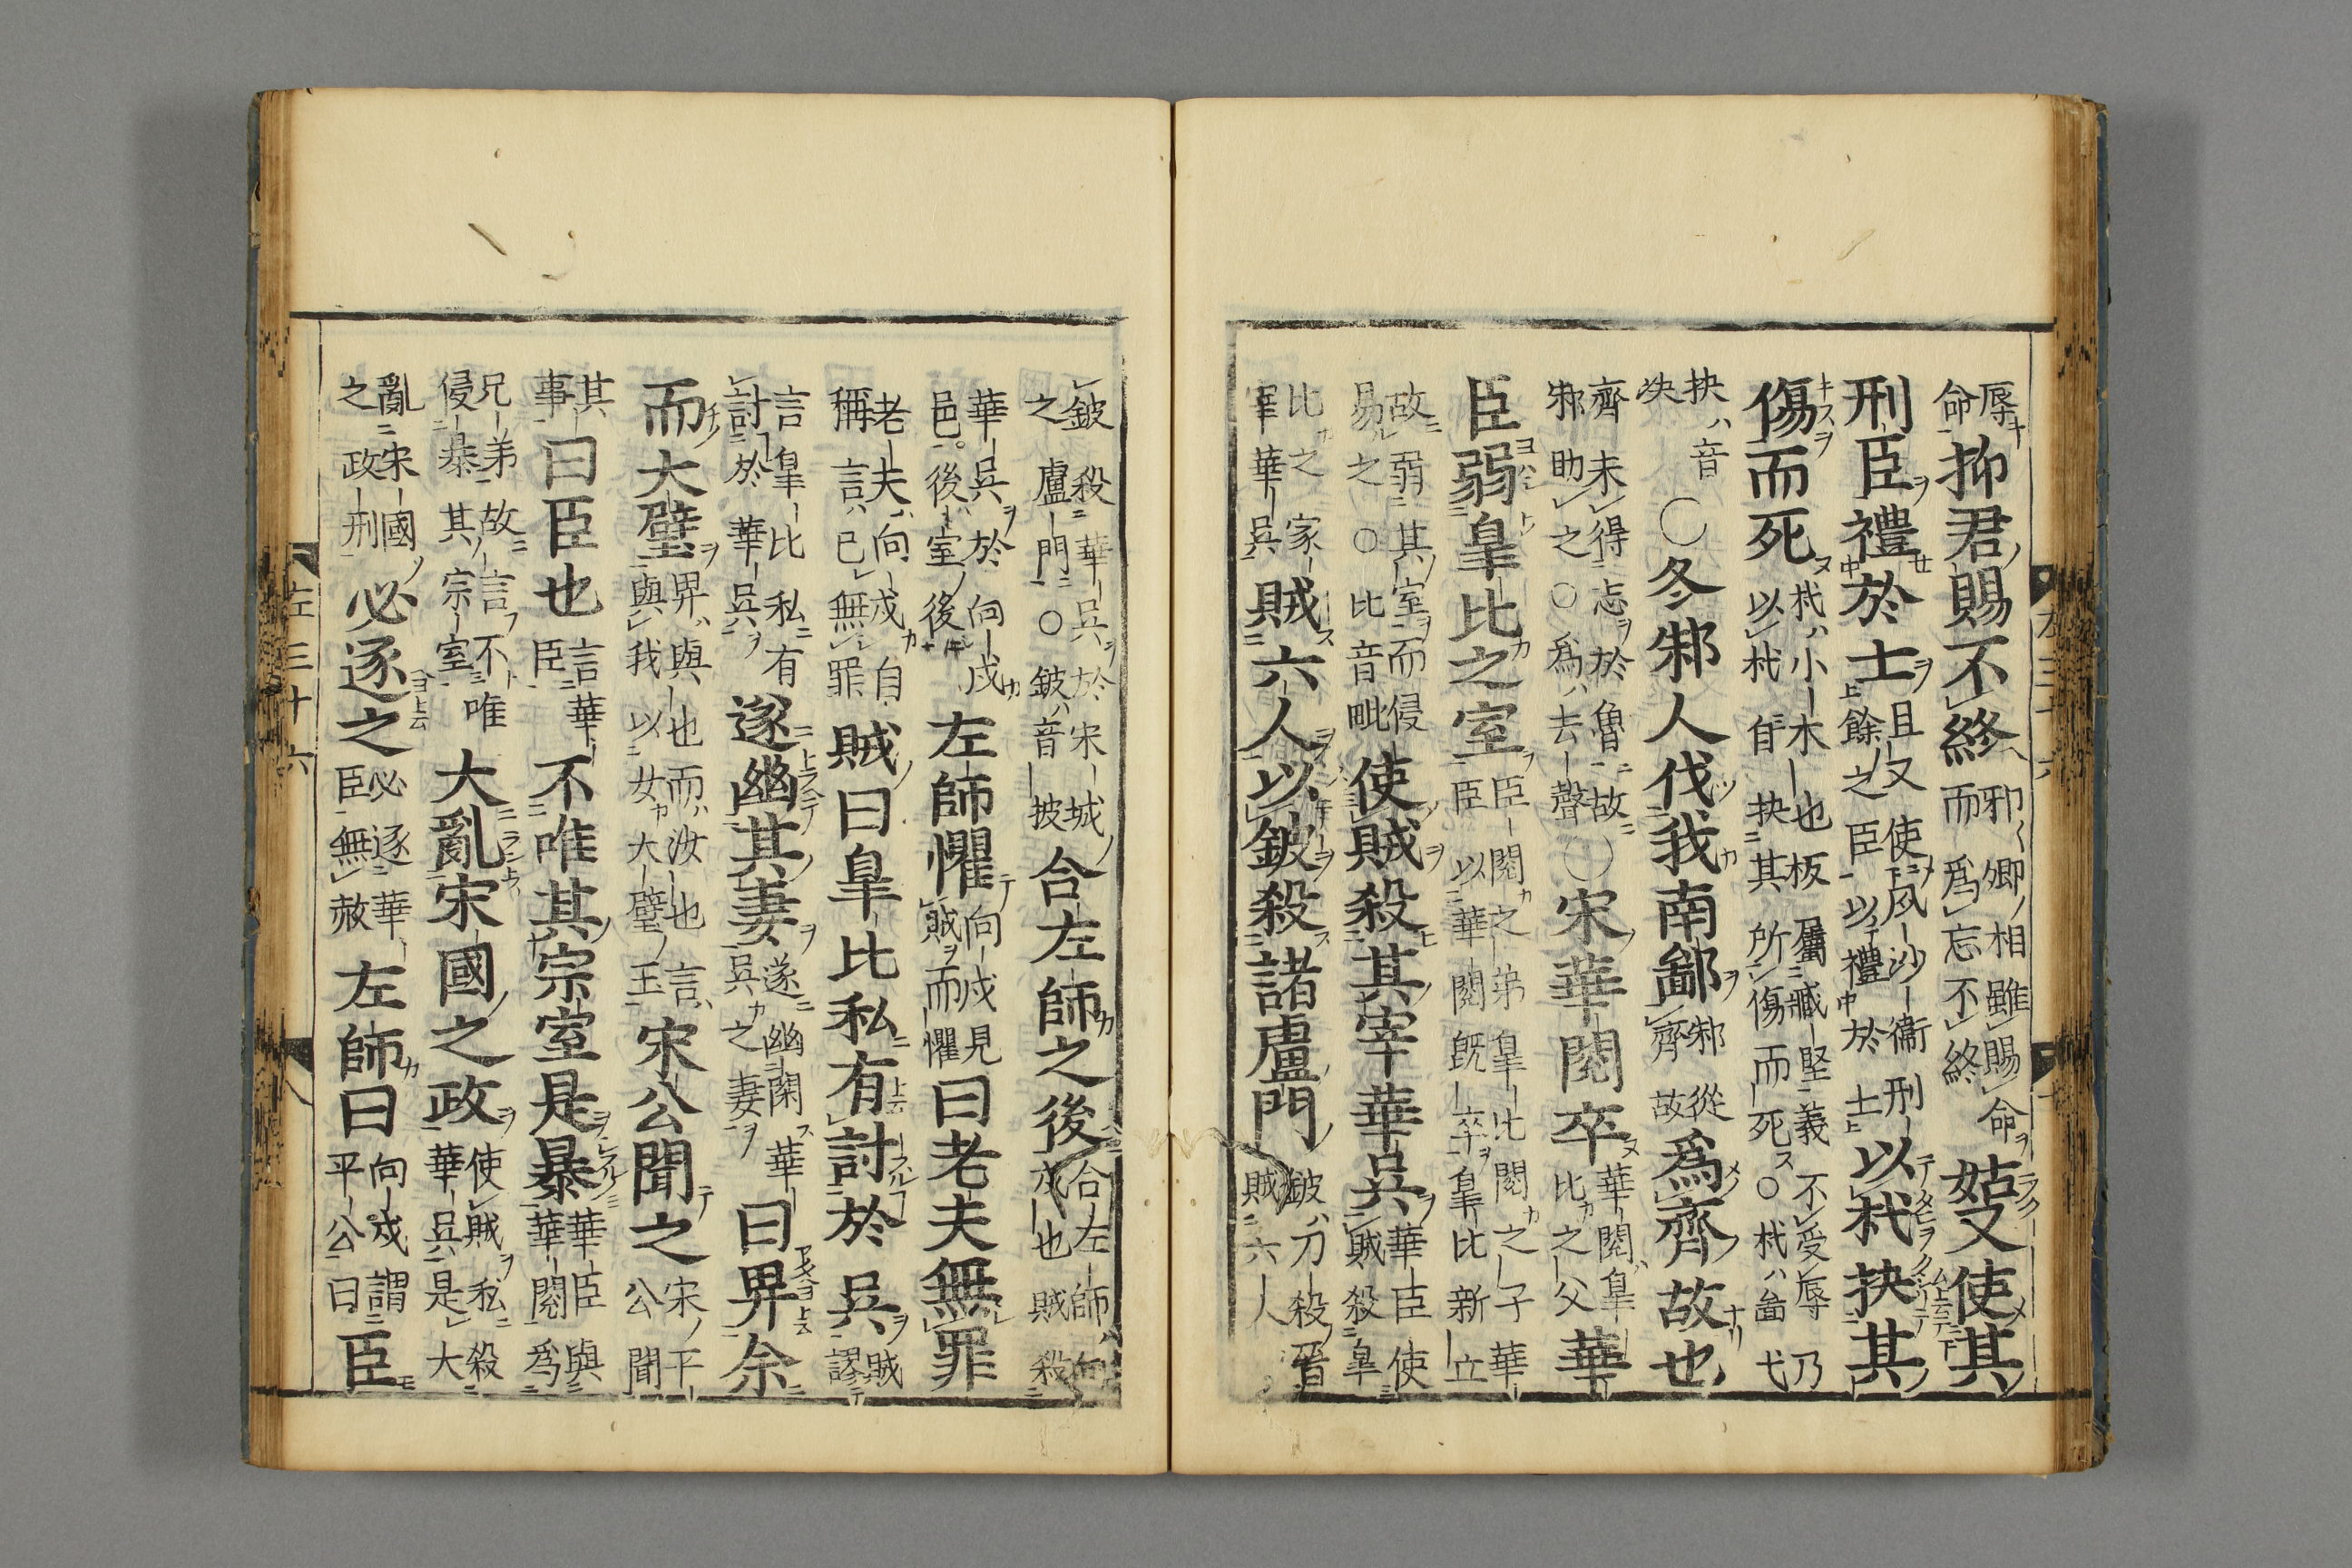 辱命抑君賜不終邪卿相雖賜命而爲忘不終姑又使其
刑臣禮於士且又使夙沙衞刑餘之臣以禮於士以杙抉其
傷而死杙小木也板屬臧堅義不受辱乃以杙自抉其所傷而死○杙畄弋
抉音抰○冬邾人伐我南鄙邾從齊故爲齊故也
齊未得忘於魯故邾助之○爲去聲○宋華閱卒華閱皐比之父華
臣弱皐比之室臣閱之弟皐比閱之子華臣以華閱旣卒皐比新立
故弱其室而侵易之○比音毗使賊殺其宰華吳華臣使賊殺皐
比之家宰華吳賊六人以鈹殺諸盧門鈹刀殺晉賊六人
左三十六
鈹殺華吳於宋城之盧門○鈹音披合左師之後合左師向戍也賊殺
華吳於向戍邑後室後左師懼向戍見賊而懼曰老夫無罪
老夫向戍自稱言已無罪賊曰皐比私有討於吳賊謬
言皐比私有討於華吳遂幽其妻遂幽閑華吳之妻曰畀余
而大璧畀與也而汝也言與我以女大璧玉宋公聞之宋平公聞
其事曰臣也言華臣不唯其宗室是暴華臣與華閱爲
兄弟故言不唯侵暴其宗室大亂宋國之政使賊私殺華吳是大
亂宋國之政刑必逐之必逐華臣無赦左師曰向戍謂平公曰臣
左三十六 八